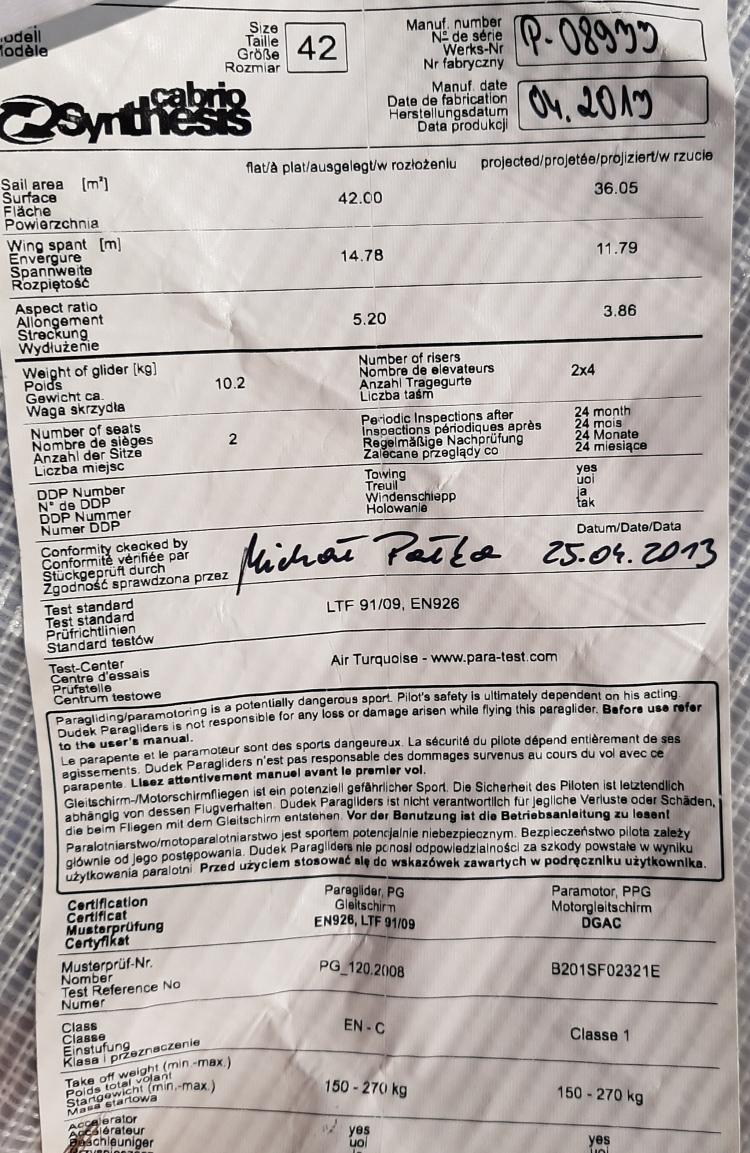 Modèle
Size
Taille
Größe
Rozmiar
42
Manuf. number
Nº de série
Werks-Nr
Nr fabryczny
P-08933
cabrio
Synthesis
Manuf. date
Date de fabrication
Herstellungsdatum
Data produkcji
04.2013
flat/à plat/ausgelegt/w rozłożeniu projected/projetée/projiziert/w rzucie
Sail area [m²]
Surface
Fläche
Powierzchnia
42.00 36.05
Wing spant [m]
Envergure
Spannweite
Rozpiętość
14.78 11.79
Aspect ratio
Allongement
Streckung
Wydłużenie
5.20 3.86
Weight of glider [kg]
Poids
Gewicht ca.
Waga skrzydła
10.2
Number of risers
Nombre de elevateurs
Anzahl Tragegurte
Liczba taśm
2x4
Number of seats
Nombre de sièges
Anzahl der Sitze
Liczba miejsc
2
Periodic Inspections after
Inspections périodiques après
Regelmäßige Nachprüfung
Zalecane przeglądy co
24 month
24 mois
24 Monate
24 miesiące
DDP Number
N° de DDP
DDP Nummer
Numer DDP
Towing
Treuil
Windenschlepp
Holowanie
yes
uoi
ja
tak
Conformity ckecked by
Conformité vérifiée par
Stückgeprüft durch
Zgodność sprawdzona przez
Michał Pałka
Datum/Date/Data
25.04.2013
Test standard
Test standard
Prüfrichtlinien
Standard testów
LTF 91/09, EN926
Test-Center
Centre d'essais
Prüfstelle
Centrum testowe
Air Turquoise - www.para-test.com
Paragliding/paramotoring is a potentially dangerous sport. Pilot's safety is ultimately dependent on his acting.
Dudek Paragliders is not responsible for any loss or damage arisen while flying this paraglider. Before use refer
to the user's manual.
Le parapente et le paramoteur sont des sports dangeureux. La sécurité du pilote dépend entièrement de ses
agissements. Dudek Paragliders n'est pas responsable des dommages survenus au cours du vol avec ce
parapente. Lisez attentivement manuel avant le premier vol.
Gleitschirm-/Motorschirmfliegen ist ein potenziell gefährlicher Sport. Die Sicherheit des Piloten ist letztendlich
abhängig von dessen Flugverhalten. Dudek Paragliders ist nicht verantwortlich für jegliche Verluste oder Schäden,
die beim Fliegen mit dem Gleitschirm entstehen. Vor der Benutzung ist die Betriebsanleitung zu lesen!
Paralotniarstwo/motoparalotniarstwo jest sportem potencjalnie niebezpiecznym. Bezpieczeństwo pilota zależy
głównie od jego postępowania. Dudek Paragliders nie ponosi odpowiedzialności za szkody powstałe w wyniku
użytkowania paralotni. Przed użyciem stosować się do wskazówek zawartych w podręczniku użytkownika.
Certification
Certificat
Musterprüfung
Certyfikat
Paraglider, PG
Gleitschirm
EN926, LTF 91/09
Paramotor, PPG
Motorgleitschirm
DGAC
Musterprüf-Nr.
Nomber
Test Reference No
Numer
PG_120.2008 B201SF02321E
Class
Classe
Einstufung
Klasa i przeznaczenie
EN - C Classe 1
Take off weight (min.-max.)
Poids total volant
Startgewicht (min.-max.)
Masa startowa
150 - 270 kg 150 - 270 kg
Accelerator
Accélérateur
Beschleuniger
yes
uoi
yes
uoi